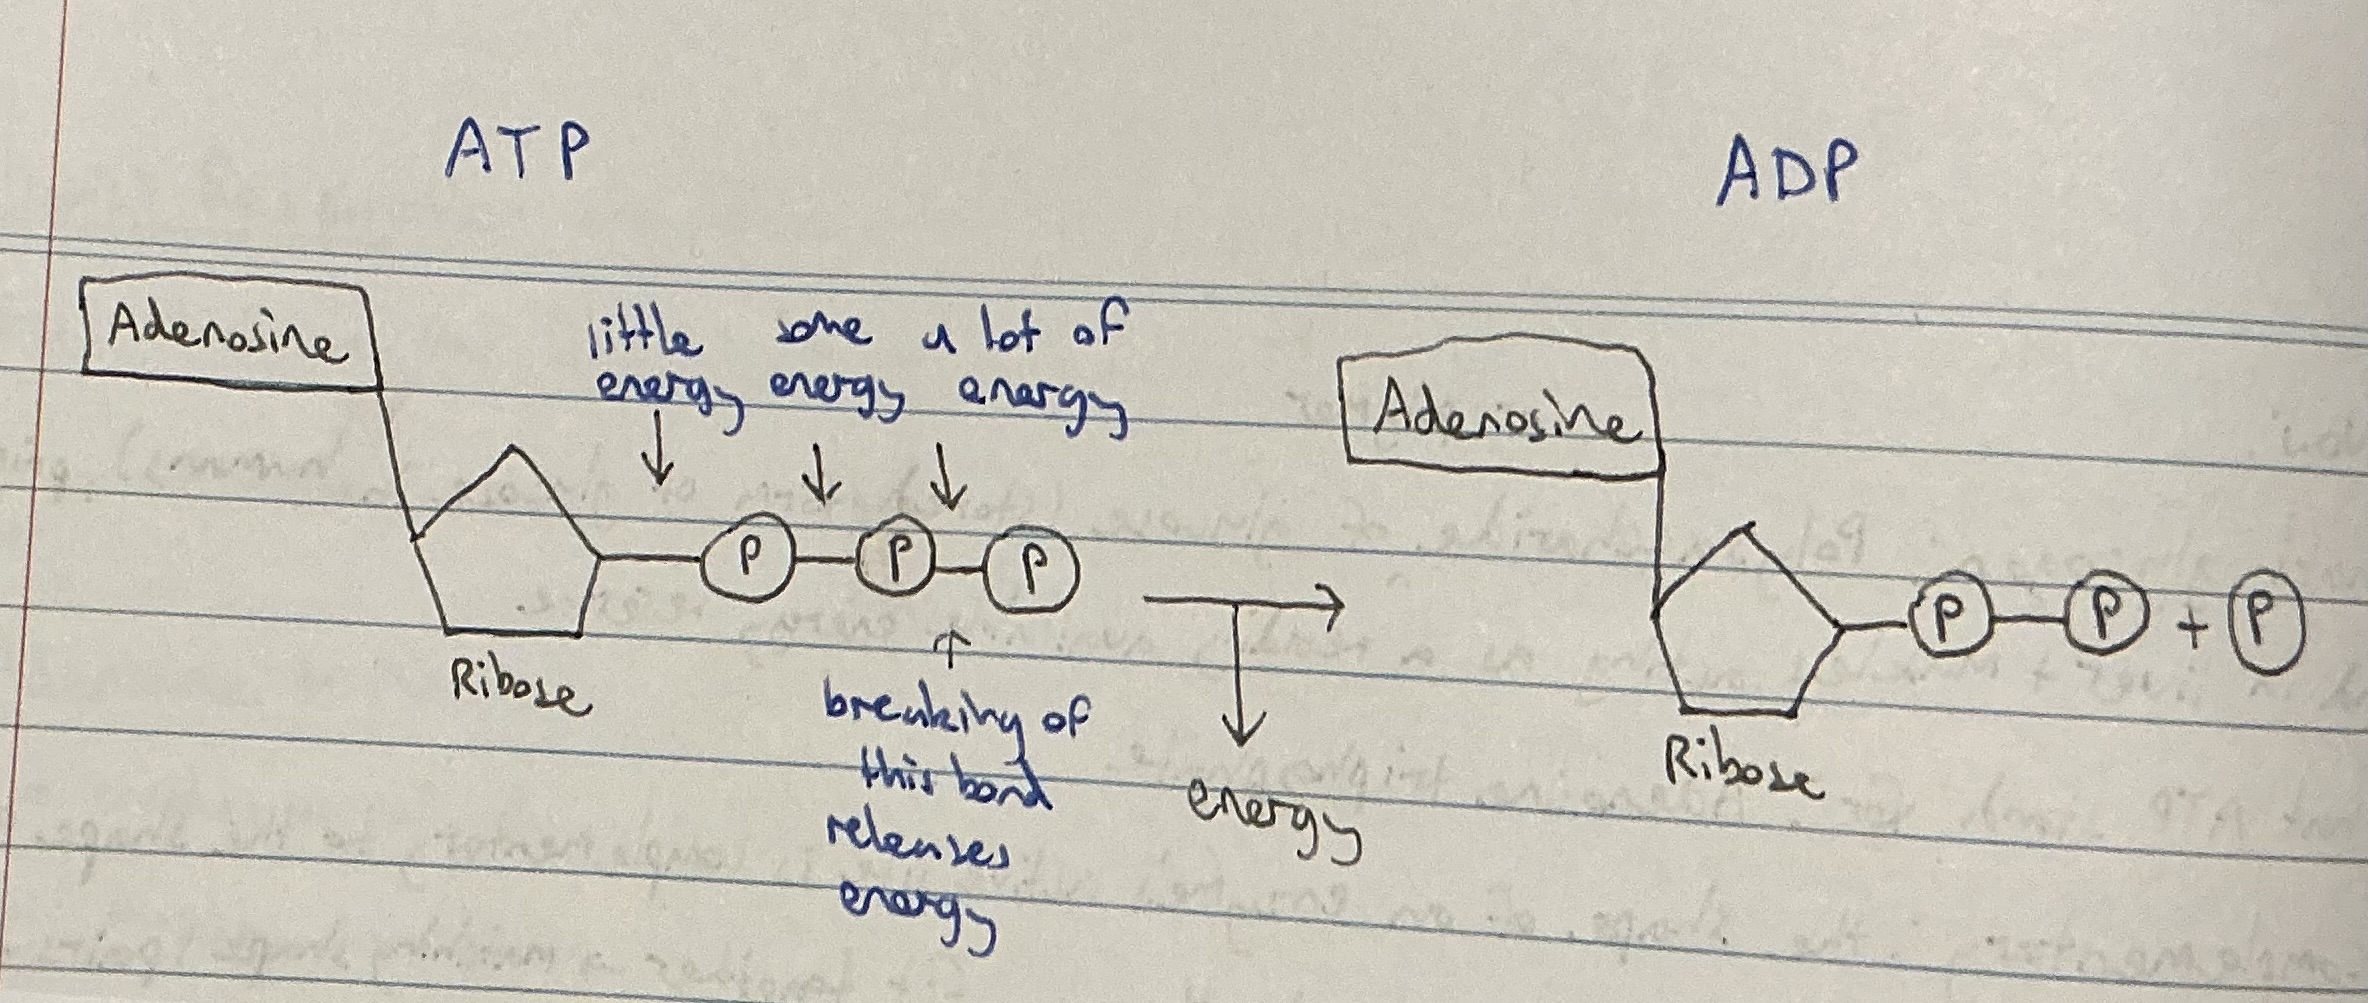 ATP
ADP
Adenosine
little some a lot of
energy energy energy
P P P
Ribose
breaking of
this bond
releases
energy
energy
Adenosine
P P + P
Ribose